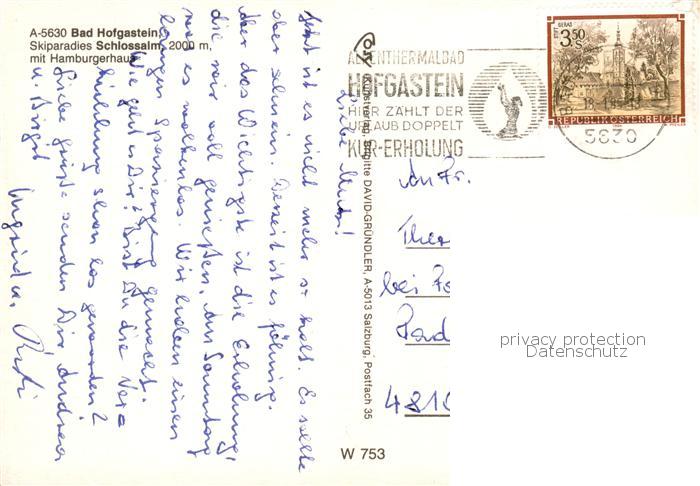 A-5630 Bad Hofgastein,
Skiparadies Schlossalm, 2000 m,
mit Hamburgerhaus
ALPENTHERMALBAD
HOFGASTEIN
HIER ZÄHLT DER
URLAUB DOPPELT
KUR-ERHOLUNG
STIFT GERAS
3.50
S
REPUBLIK ÖSTERREICH
5630
Liebe Mutter!
Jetzt ist es nicht mehr so kalt. Es sollte
aber schneien. Derzeit ist es föhnig.
Aber das Wichtigste ist die Erholung,
die wir voll genießen. Am Sonntag
war es wolkenlos. Wir haben einen
langen Spaziergang gemacht.
Wie geht es Dir? Bist Du die Ver-
kühlung schon los geworden?
Liebe Grüße senden Dir Andrea
u. Birgit
Ingrid u.
Kunstverlag Brigitte DAVID-GRÜNDLER, A-5013 Salzburg, Postfach 35
An Fr.
Ther
bei
Bad
4810
W 753
privacy protection
Datenschutz